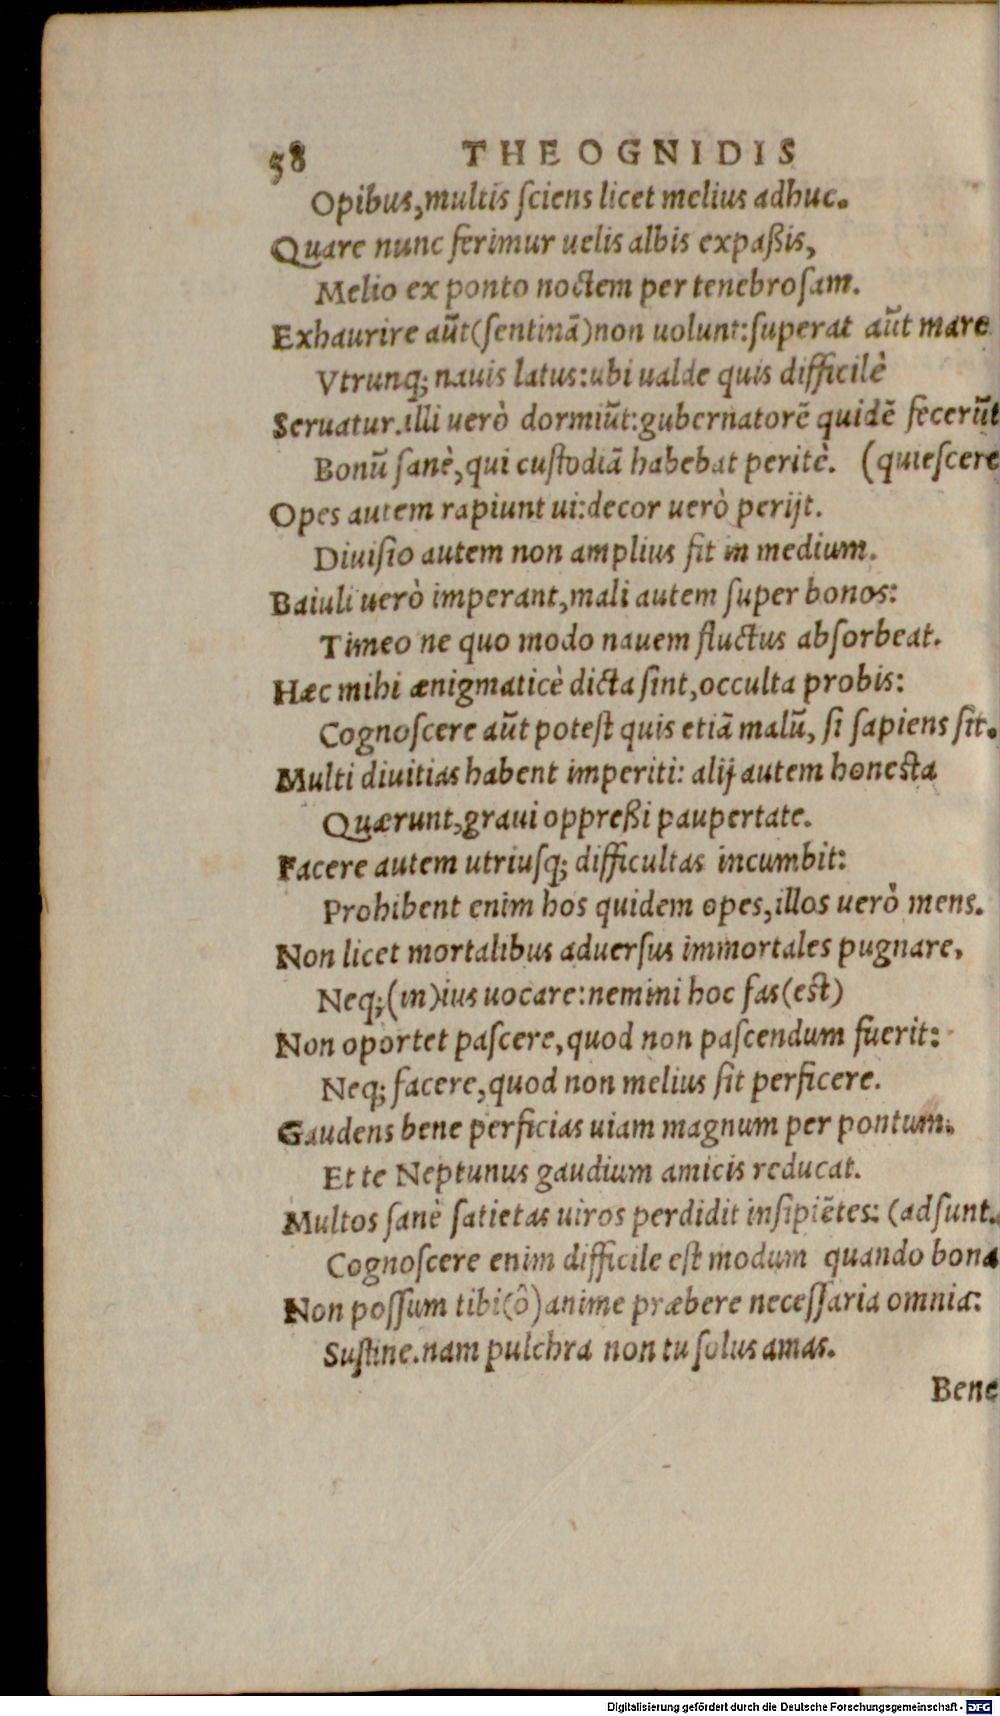 58 THEOGNIDIS
Opibus, multis ſciens licet melius adhuc.
Quare nunc ferimur uelis albis expaßis,
Melio ex ponto noctem per tenebroſam.
Exhaurire aũt (ſentinã) non uolunt: ſuperat aũt mare
Vtrunq; nauis latus: ubi ualde quis difficilè
Seruatur. illi uerò dormiũt: gubernatorẽ quidẽ fecerũt
Bonũ ſanè, qui cuſtodiã habebat peritè. (quieſcere
Opes autem rapiunt ui: decor uerò perijt.
Diuiſio autem non amplius fit in medium.
Baiuli uerò imperant, mali autem ſuper bonos:
Timeo ne quo modo nauem fluctus abſorbeat.
Hæc mihi ænigmaticè dicta ſint, occulta probis:
Cognoſcere aũt poteſt quis etiã malũ, ſi ſapiens ſit.
Multi diuitias habent imperiti: alij autem honeſta
Quærunt, graui oppreßi paupertate.
Facere autem utriuſq; difficultas incumbit:
Prohibent enim hos quidem opes, illos uerò mens.
Non licet mortalibus aduerſus immortales pugnare,
Neq; (in) ius uocare: nemini hoc fas (eſt)
Non oportet paſcere, quod non paſcendum fuerit:
Neq; facere, quod non melius ſit perficere.
Gaudens bene perficias uiam magnum per pontum.
Et te Neptunus gaudium amicis reducat.
Multos ſanè ſatietas uiros perdidit inſipiẽtes: (adſunt.
Cognoſcere enim difficile eſt modum quando bona
Non poſſum tibi (ô) anime præbere neceſſaria omnia:
Suſtine. nam pulchra non tu ſolus amas.
Bene
Digitalisierung gefördert durch die Deutsche Forschungsgemeinschaft - DFG